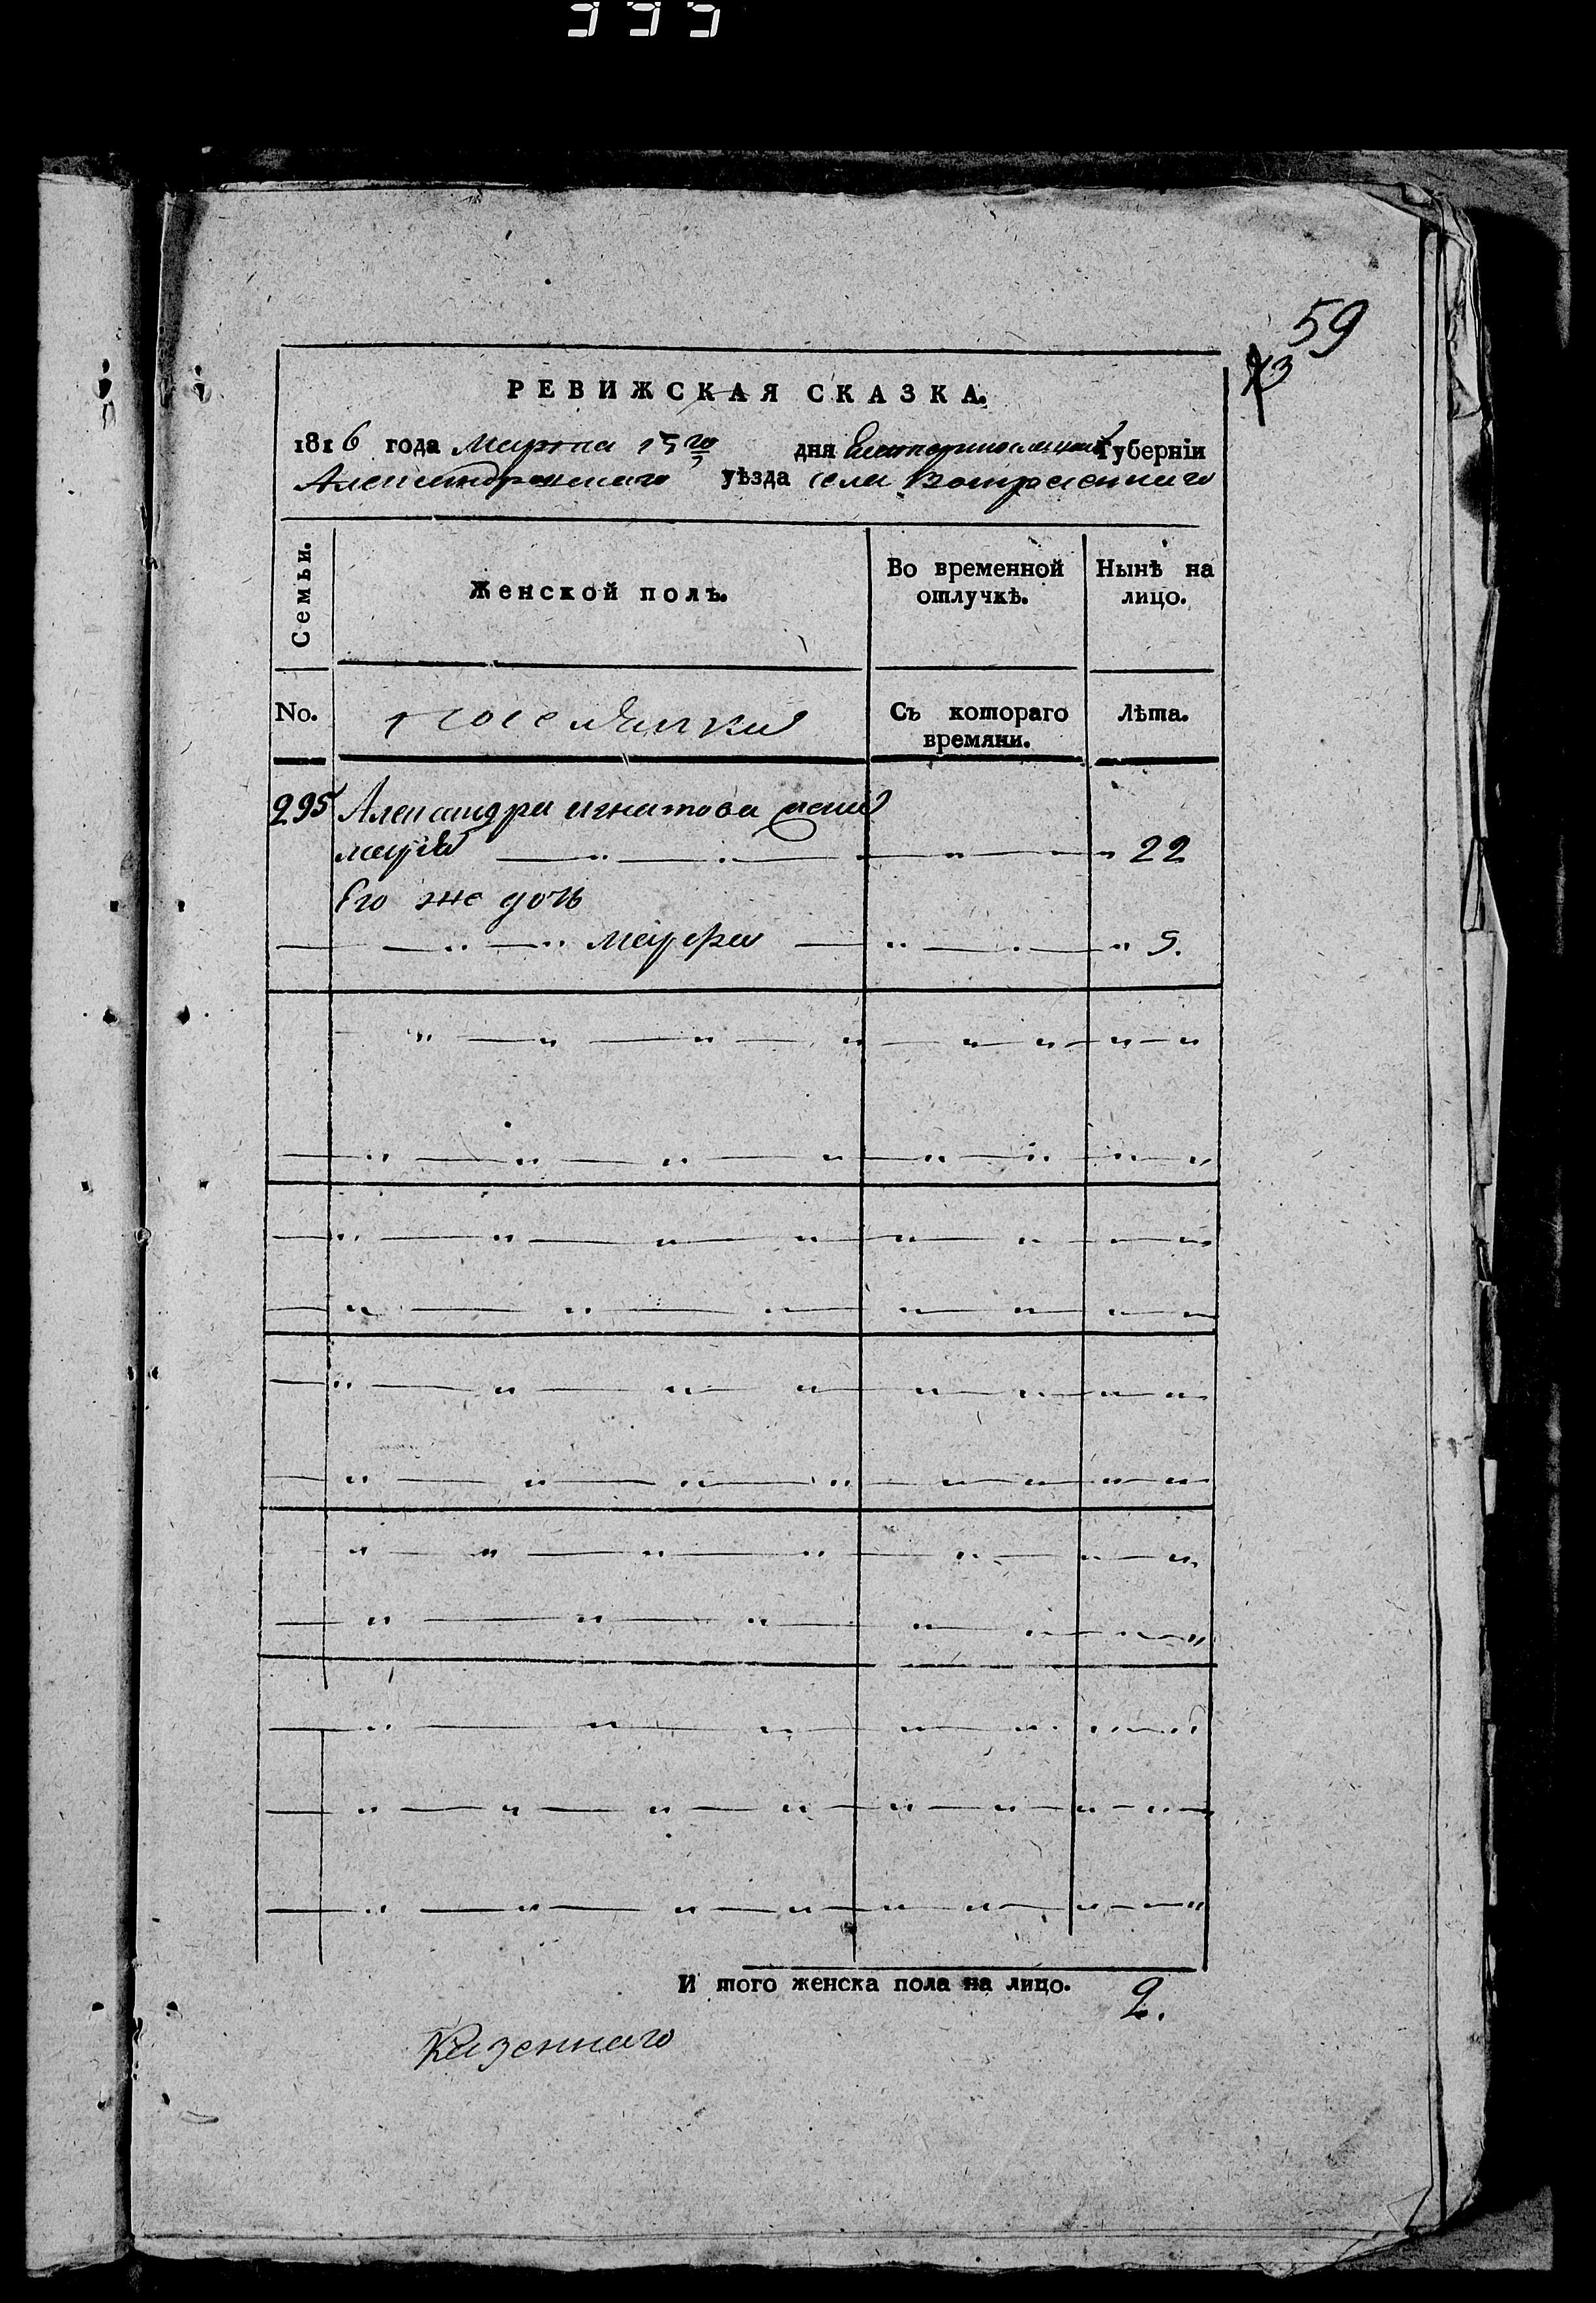 59
73
РЕВИЖСКАЯ СКАЗКА.
1816 года Марта 15го дня Екатеринославской Губерніи
Александровскаго уѣзда села Вознесенскаго
Семьи.
Женской полъ.
Во временной отлучкѣ.
Ныиѣ на лицо.
No.
поселянки
Съ котораго времяни.
Лѣта.
295 Александра игнатова жена
марія 22
Его же дочь
марфа 5.
И того женска пола на лицо. 2.
Казеннаго